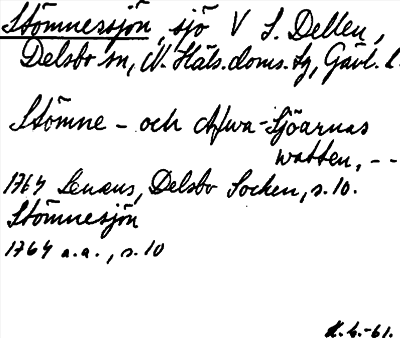 Stömnessjön, sjö V S. Dellen,
Delsbo sn, N. Häls. doms. sg, Gävl. l.
Stömne – och Afwa-Sjöarnas
watten, --
1764 Lenæus, Delsbo Socken, s. 10.
Stömnesjön
1764 a.a., s. 10
-61.